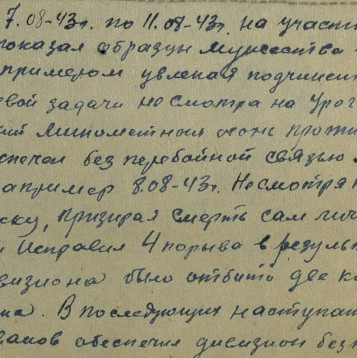 7.08-43г. по 11.08-43г. на участ
показал образцы мужества и
примером увлекая подчинен
евой задачи несмотря на ураг
кий минометный огонь против
еспечен без перебойной связью
например 8.08-43г. Несмотря н
ску, призирая смерть сам лич
и исправил 4 порыва в резуль
ивизиона было отбито две ко
на. В последующих наступат
ванов обеспечил дивизион без п